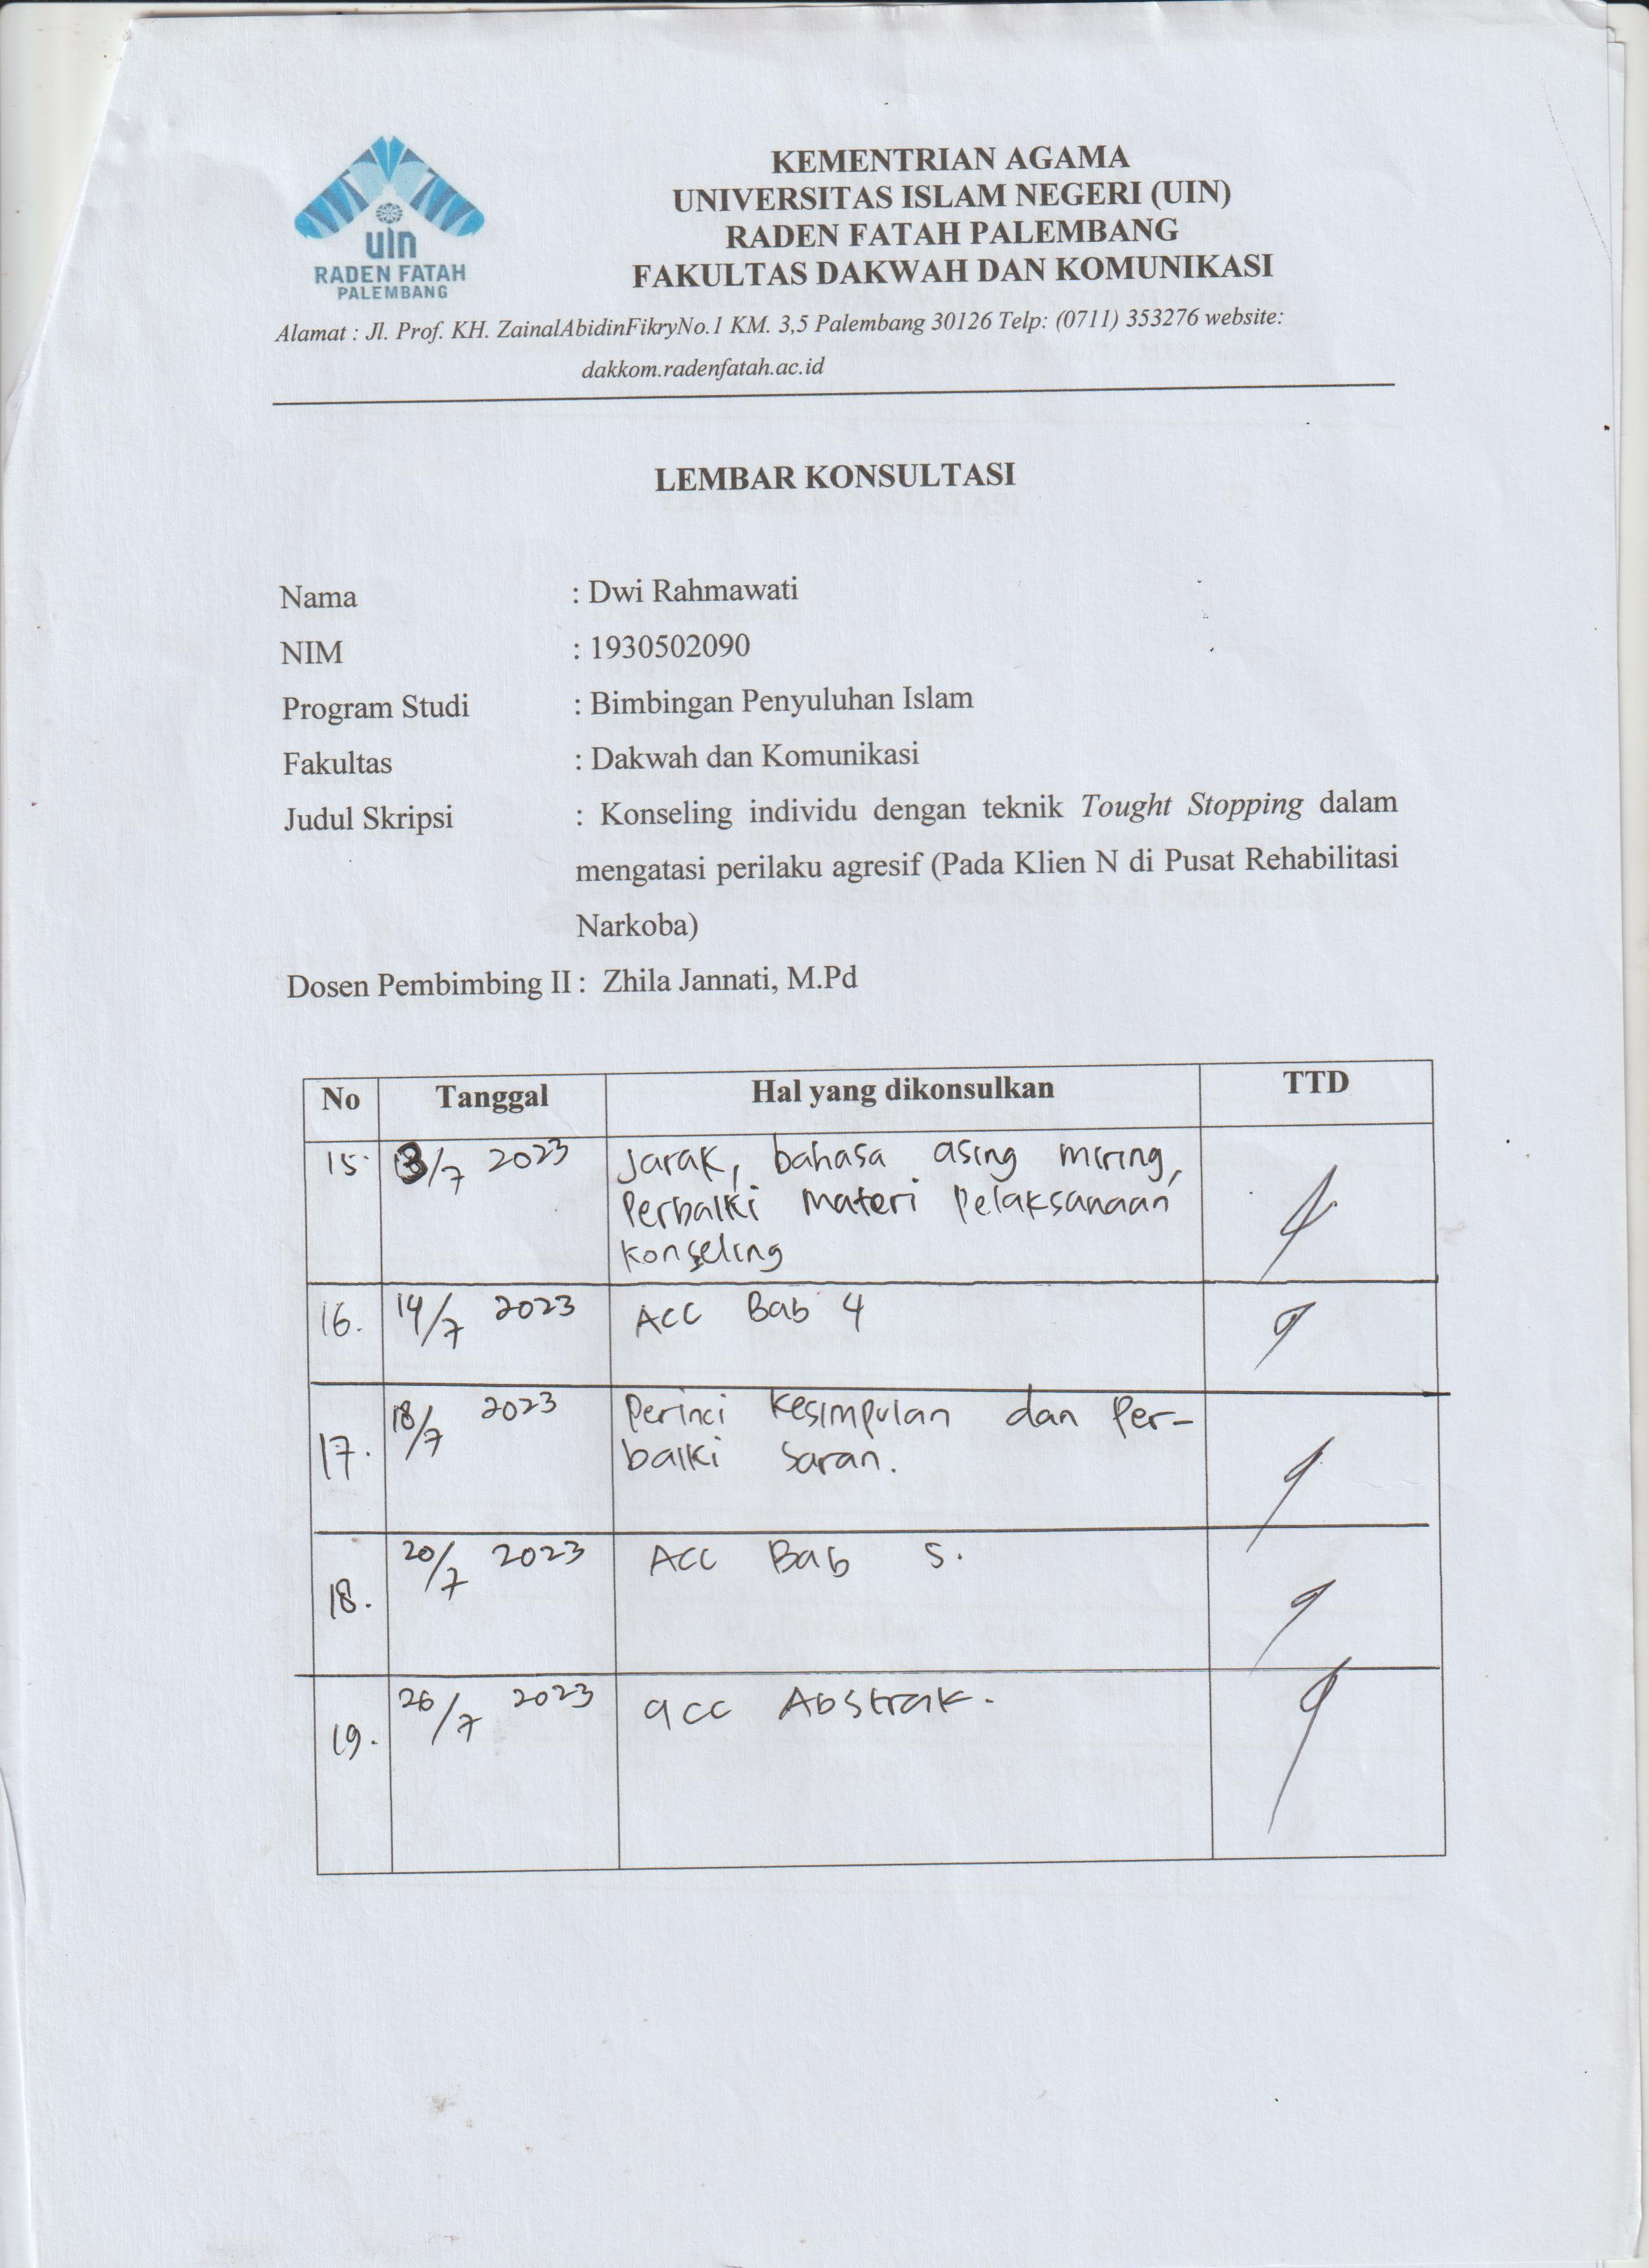 uin
RADEN FATAH
PALEMBANG
KEMENTRIAN AGAMA
UNIVERSITAS ISLAM NEGERI (UIN)
RADEN FATAH PALEMBANG
FAKULTAS DAKWAH DAN KOMUNIKASI
Alamat : Jl. Prof. KH. ZainalAbidinFikryNo.1 KM. 3,5 Palembang 30126 Telp: (0711) 353276 website:
dakkom.radenfatah.ac.id
LEMBAR KONSULTASI
Nama : Dwi Rahmawati
NIM : 1930502090
Program Studi : Bimbingan Penyuluhan Islam
Fakultas : Dakwah dan Komunikasi
Judul Skripsi : Konseling individu dengan teknik Tought Stopping dalam
mengatasi perilaku agresif (Pada Klien N di Pusat Rehabilitasi
Narkoba)
Dosen Pembimbing II : Zhila Jannati, M.Pd
No Tanggal Hal yang dikonsulkan TTD
15. /7 2023 Jarak, bahasa asing miring,
Perbaiki materi Pelaksanaan
Konseling
16. 14/7 2023 Acc Bab 4
17. 18/7 2023 Perinci Kesimpulan dan Per-
baiki Saran.
18. 20/7 2023 Acc Bab 5.
19. 26/7 2023 acc Abstrak.